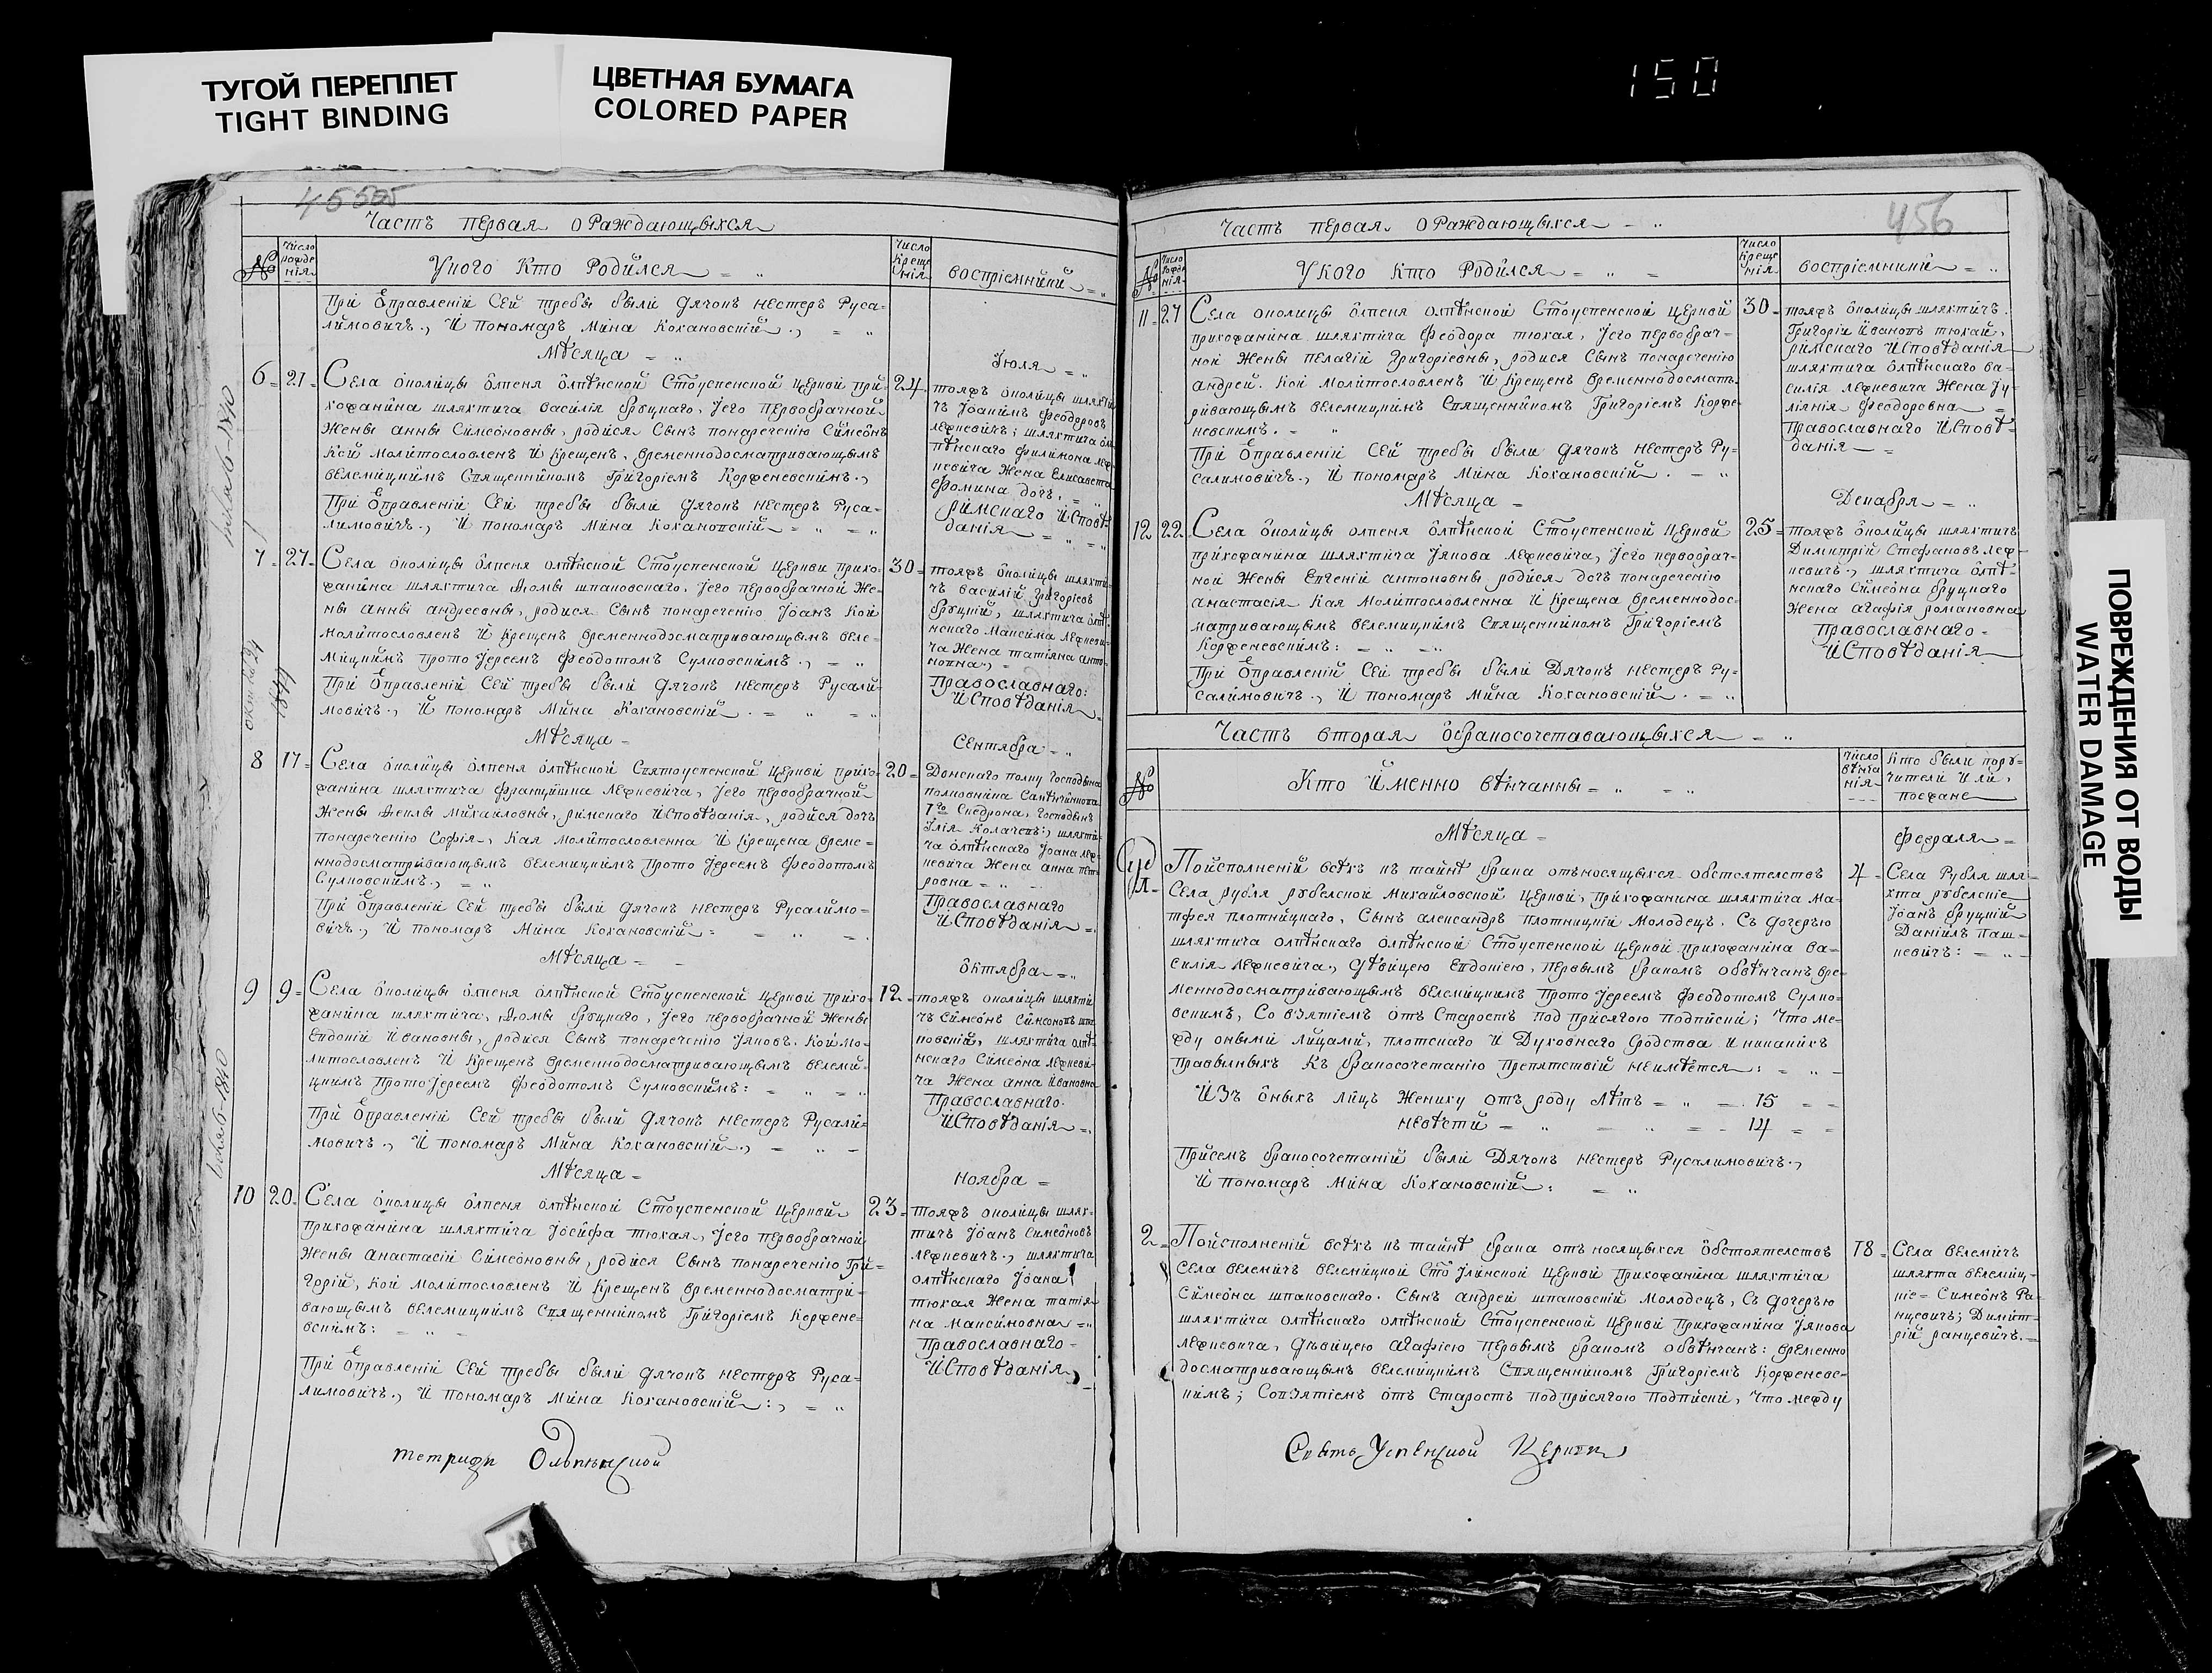 ТУГОЙ ПЕРЕПЛЕТ
TIGHT BINDING
ЦВЕТНАЯ БУМАГА
COLORED PAPER
150
Часть первая о Раждающыхся
№
Число рожде нія
Укого Кто Родился
Число Креще нія
воспріемники
При Ѿправленіи Сей требы были дячокъ нестеръ Руса-
лимовичъ., И пономаръ Мина Кохановскій.,
Мѣсяца
Іюля
6
21
24
Села околицы олпеня олпѣнской Стоуспенской церкви при-
хожанина шляхтича василія бруцкаго, Іего первобрачной
Жены анны Симеоновны, родися Сынъ понареченію Симеонъ
Кой молитвословленъ И Крещенъ, временнодосматривающымъ
велемицкимъ Священникомъ Григоріемъ Корженевскимъ.,
При Ѿправленіи Сей требы были дячокъ нестеръ Руса-
лимовичъ., И пономаръ Мина Кохановскій
тояжъ околицы шляхти
чъ Іоакимъ Феодоровъ
лежневичъ; шляхтича ол
пѣнскаго филимона леж
невича Жена Елисавета
Фомина дочъ,
римскаго Исповѣ-
данія
7
27
30
Села околицы олпеня олпѣнской Стоуспенской церкви прихо-
жанина шляхтича Ѳомы шпаковскаго, Іего первобрачной Же-
ны анны андреевны, родися Сынъ понареченію Іоанъ Кой
молитвословленъ И Крещенъ временнодосматривающымъ веле-
мицкимъ Прото Іереемъ Феодотомъ Сулковскимъ.,
При Ѿправленіи Сей требы были дячокъ нестеръ Русали-
мовичъ., И пономаръ Мина Кохановскій.
тояжъ околицы шляхти
чъ василій Григоріевъ
бруцкій, шляхтича олпѣ
нскаго Максима лежневи-
ча Жена татіяна анто
новна,
Православнаго:
Исповѣданія
Мѣсяца
Сентября
8
17
20
Села околицы олпеня олпѣнской Святоуспенской церкви прихо-
жанина шляхтича францишка лежневича, Іего первобрачной
Жены Ѳеклы Михайловны, римскаго Исповѣданія, родися дочъ
понареченію Софія, Кая молитвословленна И Крещена време-
ннодосматривающымъ велемицкимъ Прото Іереемъ Феодотомъ
Сулковскимъ.,
При Ѿправленіи Сей требы были дячокъ нестеръ Русалимо-
вичъ., И пономаръ Мина Кохановскій:
Донскаго полку Господина
полковника
Господинъ
Илія шляхти-
ча олпѣнскаго Іоана леж-
невича Жена анна пет
ровна
Православнаго
Исповѣданія
Мѣсяца
октября
9
9
12
Села околицы олпеня олпѣнской Стоуспенской церкви прихо-
жанина шляхтича, Ѳомы бруцкаго, Іего первобрачной Жены
Евдокіи Ивановны, родися Сынъ понареченію Іяковъ. Кой мо-
литвословленъ И Крещенъ временнодосматривающымъ велеми-
цкимъ Прото Іереемъ Феодотомъ Сулковскимъ:
При Ѿправленіи Сей требы были дячокъ нестеръ Русали-
мовичъ., И пономаръ Мина Кохановскій.,
тояжъ околицы шляхти
чъ Симеонъ Симеоновъ шпа
ковскій, шляхтича олпѣ
нскаго Симеона лежневи-
ча Жена анна Ивановна
Православнаго.
Исповѣданія
Мѣсяца
ноября
10
20
23
Села околицы олпеня олпѣнской Стоуспенской церкви
прихожанина шляхтича Іосифа тюхая, Іего первобрачной
Жены анастасіи Симеоновны, родися Сынъ понареченію Гри-
горій, Кой молитвословленъ И Крещенъ временнодосматри-
вающымъ велемицкимъ Священникомъ Григоріемъ Коржене-
вскимъ:
При Ѿправленіи Сей требы были дячокъ нестеръ Руса-
лимовичъ., И пономаръ Мина Кохановскій:,
тояжъ околицы шлях-
тичъ Іоанъ Симеоновъ
лежневичъ., шляхтича
олпѣнскаго Іоана
тюхая Жена татія-
на Максимовна
Православнаго
Исповѣданія
Метрики Олпѣнской
456
Часть первая о Раждающыхся
№
Число рожде нія
Укого Кто Родился
Число Креще нія
воспріемники
11
27
30
Села околицы олпеня олпѣнской Стоуспенской церкви
прихожанина шляхтича Феодора тюхая, Іего первобрач-
ной Жены пелагіи Григоріевны, родися Сынъ понареченію
андрей. Кой молитвословленъ И Крещенъ временнодосмат-
ривающымъ велемицкимъ Священникомъ Григоріемъ Корже-
невскимъ.
При Ѿправленіи Сей требы были дячокъ нестеръ Ру-
салимовичъ., И пономаръ Мина Кохановскій.
тояжъ околицы шляхтичъ.
Григорій Ивановъ тюхай,
римскаго Исповѣданія
шляхтича олпѣнскаго ва-
силія лежневича Жена Іу-
ліянія Феодоровна
Православнаго Исповѣ-
данія
Мѣсяца
Декабря
12
22
25
Села околицы олпеня олпѣнской Стоуспенской церкви
прихожанина шляхтича Іякова лежневича, Іего первобрач-
ной Жены Евгеніи антоновны родися дочъ понареченію
анастасія Кая молитвословленна И Крещена временнодос-
матривающымъ велемицкимъ Священникомъ Григоріемъ
Корженевскимъ:
При Ѿправленіи Сей требы были Дячокъ нестеръ Ру-
салимовичъ., И пономаръ Мина Кохановскій.
тояжъ околицы шляхтичъ
Димитрій Стефановъ леж-
невичъ., шляхтича олпѣ-
нскаго Симеона бруцкаго
Жена агафія романовна
Православнаго
Исповѣданія
Часть вторая о бракосочетавающыхся
№
Кто Именно вѣнчанны
Число вѣнча нія
Кто были пору-
чители Или,
поежане
Мѣсяца
Февраля
4
Поисполненіи всѣхъ къ тайнѣ брака отъносящыхся обстоятелствъ
Села рубля рубелской Михайловской церкви, прихожанина шляхтича Ма-
тфея плотницкаго, Сынъ александръ плотницкій Молодецъ. Съ дочерью
шляхтича олпѣнскаго олпѣнской Стоуспенской церкви прихожанина ва-
силія лежневича, дѣвицею Евдокіею, первымъ бракомъ обвѣнчанъ вре-
меннодосматривающымъ велемицкимъ Прото Іереемъ Феодотомъ Сулко-
вскимъ, Со взятіемъ отъ Старостъ под присягою подписки; Что ме-
жду оными лицами, плотскаго И Духовнаго родства И никакихъ
Правилныхъ Къ бракосочетанію Препятствій неимѣется:
Изъ оныхъ лицъ Жениху отъ роду лѣтъ 15
невѣсти 14
Присемъ бракосочетаніи были Дячокъ нестеръ Русалимовичъ.,
И пономаръ Мина Кохановскій:
Села Рубля шля-
хта рубелскіе
Іоанъ бруцкій
Даніилъ Паш-
кевичъ:
2
18
Поисполненіи всѣхъ къ тайнѣ брака отъ носящыхся обстоятелствъ
Села велемичъ велемицкой Сто Илинской церкви Прихожанина шляхтича
Симеона шпаковскаго. Сынъ андрей шпаковскій Молодецъ, Съ дочерью
шляхтича олпѣнскаго олпѣнской Стоуспенской церкви Прихожанина Іякова
лежневича, дѣвицею агафіею первымъ бракомъ обвѣнчанъ: временно
досматривающымъ велемицкимъ Священникомъ Григоріемъ Корженевс-
кимъ; Совзятіемъ отъ Старостъ подприсягою Подписки, Что между
Села велемичъ
шляхта велемиц-
кіе Симеонъ Ра-
нцевичъ; Димит-
рій ранцевичъ.
Свято Успенской Церкви
ПОВРЕЖДЕНИЯ ОТ ВОДЫ
WATER DAMAGE